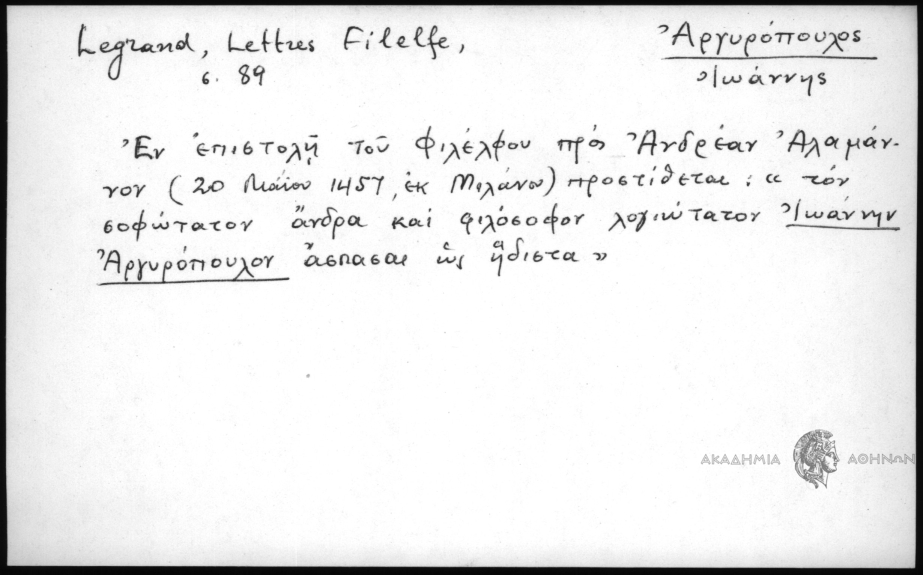 Legrand, Lettres Filelfe,
σ. 89
Ἀργυρόπουλος
Ἰωάννης
Ἐν ἐπιστολῇ τοῦ Φιλέλφου πρὸς Ἀνδρέαν Ἀλαμάν-
νον (20 Μαΐου 1457, ἐκ Μιλάνου) προστίθεται: « τὸν
σοφώτατον ἄνδρα καὶ φιλόσοφον λογιώτατον Ἰωάννην
Ἀργυρόπουλον ἄσπασαι ὡς ἥδιστα »
ΑΚΑΔΗΜΙΑ ΑΘΗΝΩΝ